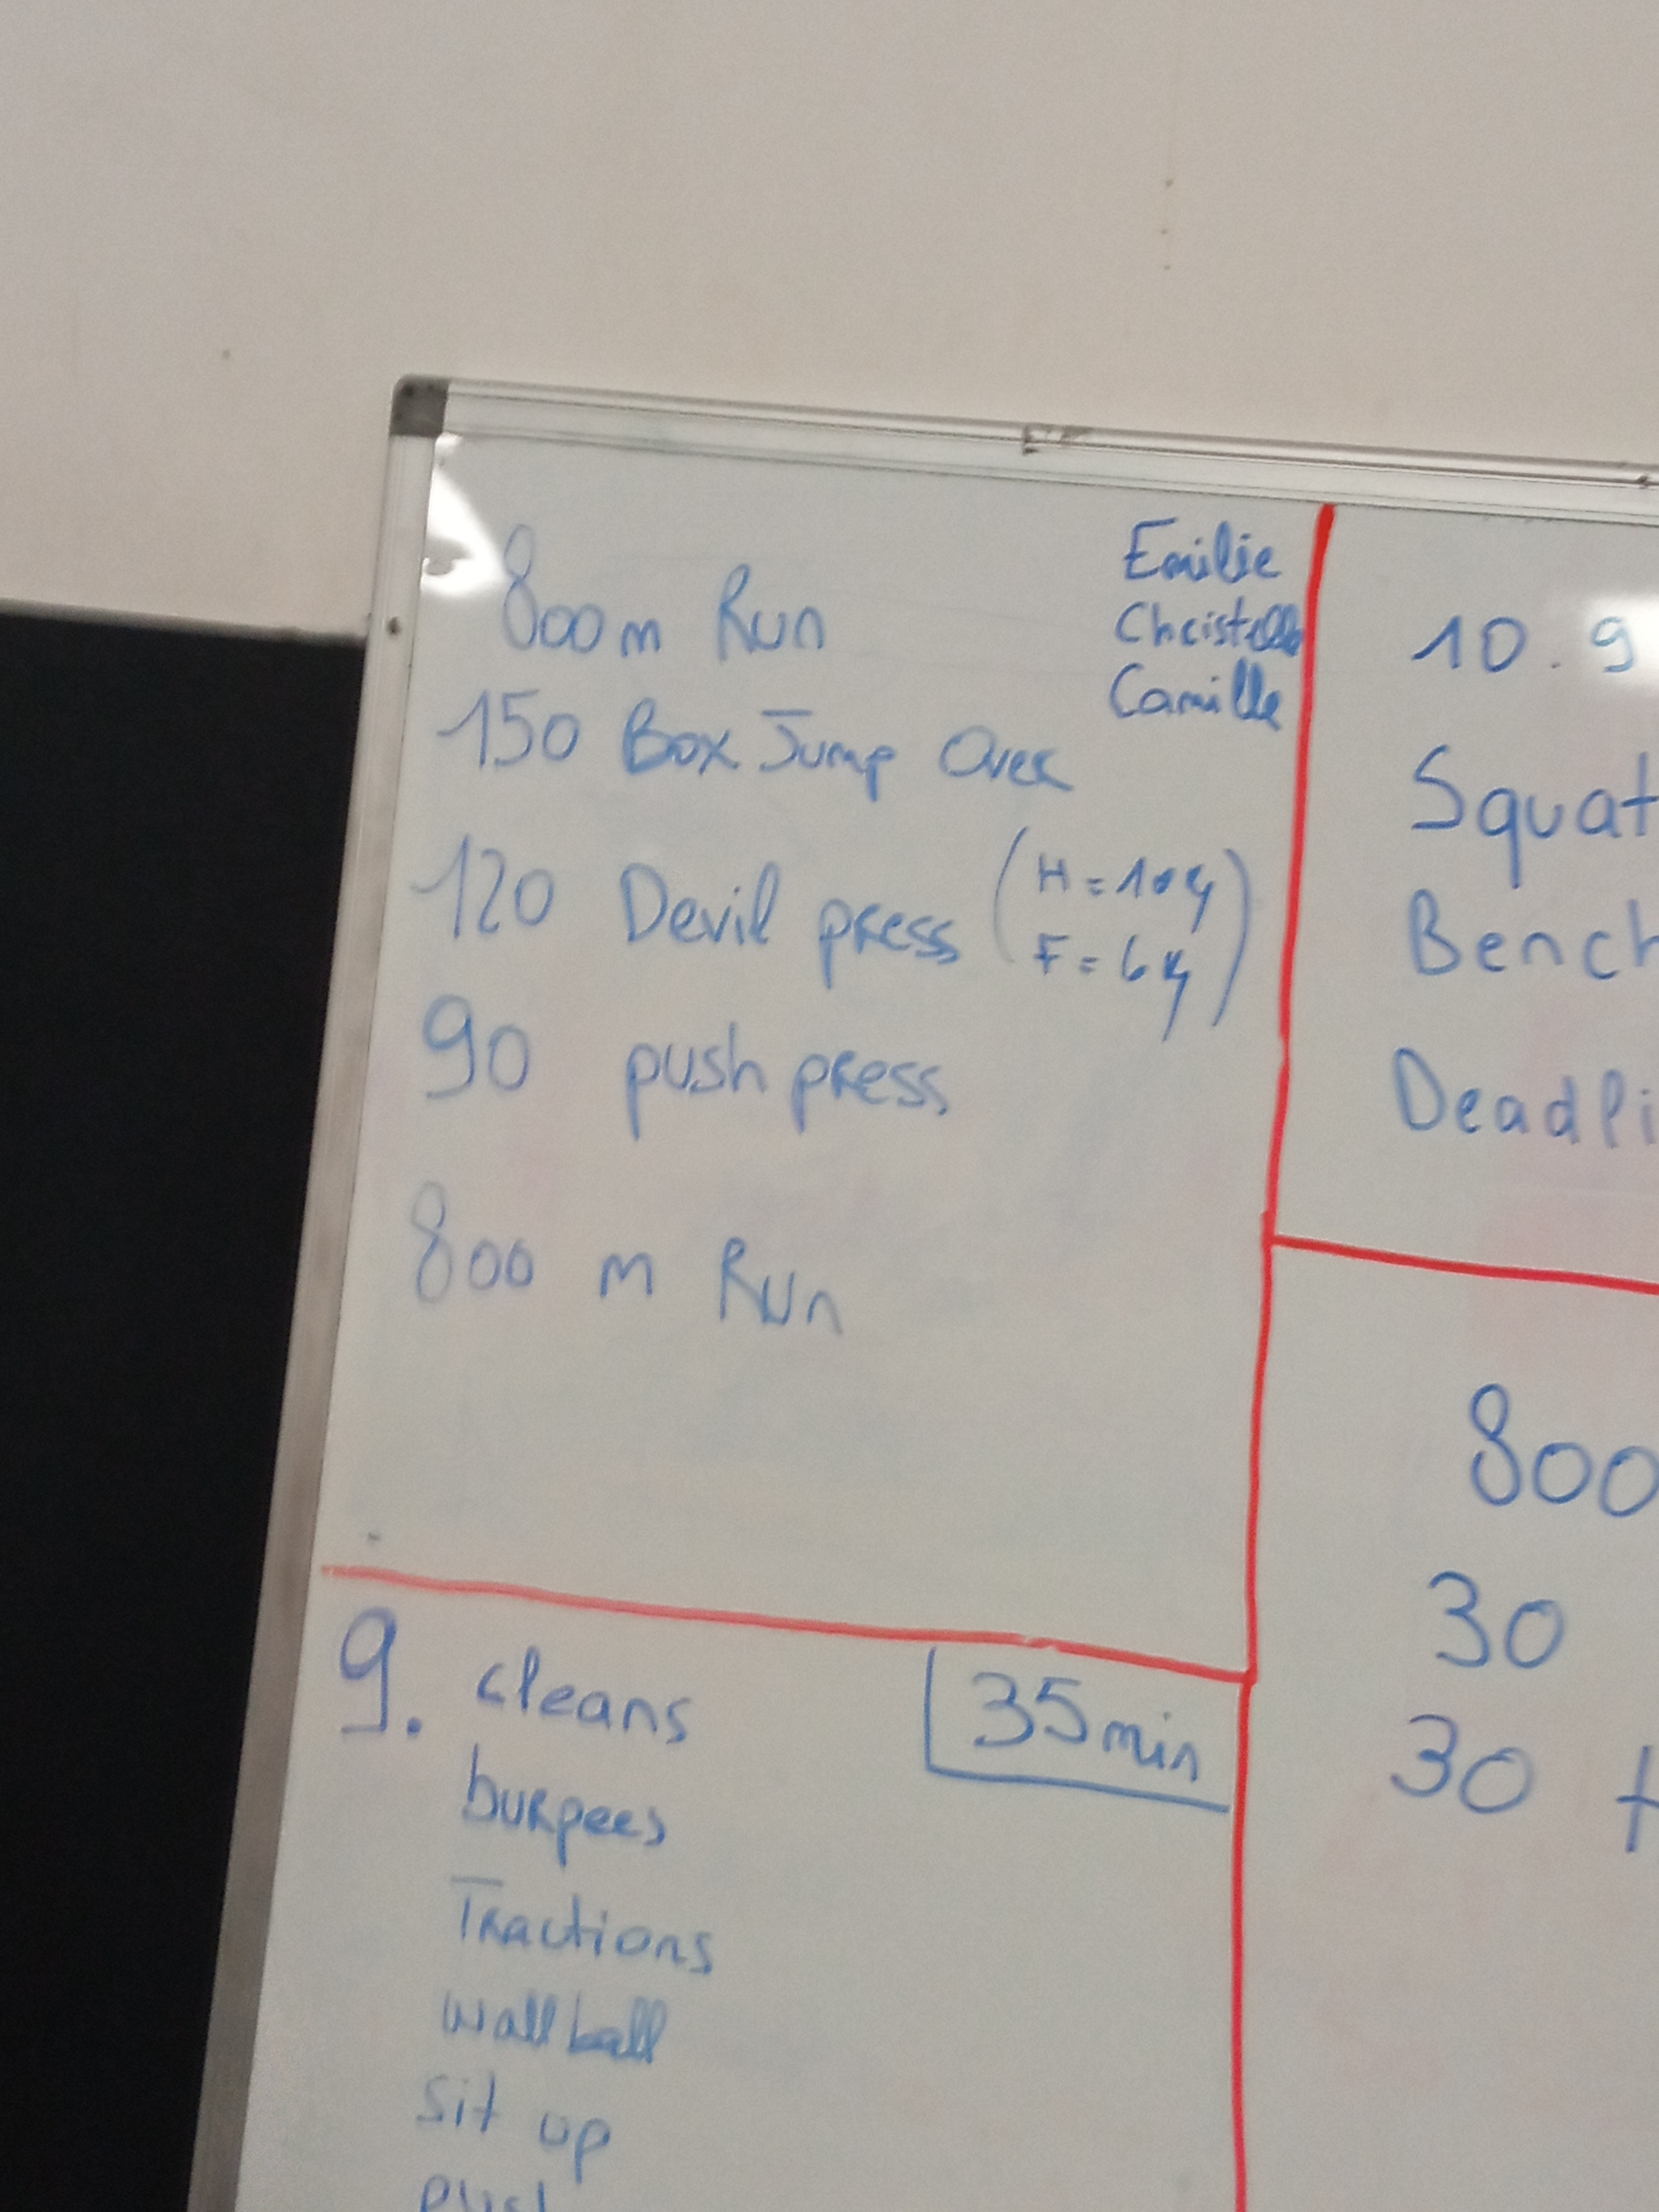 800m Run
Emilie
Christelle
Camille
150 Box Jump Over
120 Devil press (H = 10kg
F = 6kg)
90 push press
800 m Run
9. cleans
35min
burpees
Tractions
wall ball
sit up
10.9
Squat
Bench
Deadli
800
30
30